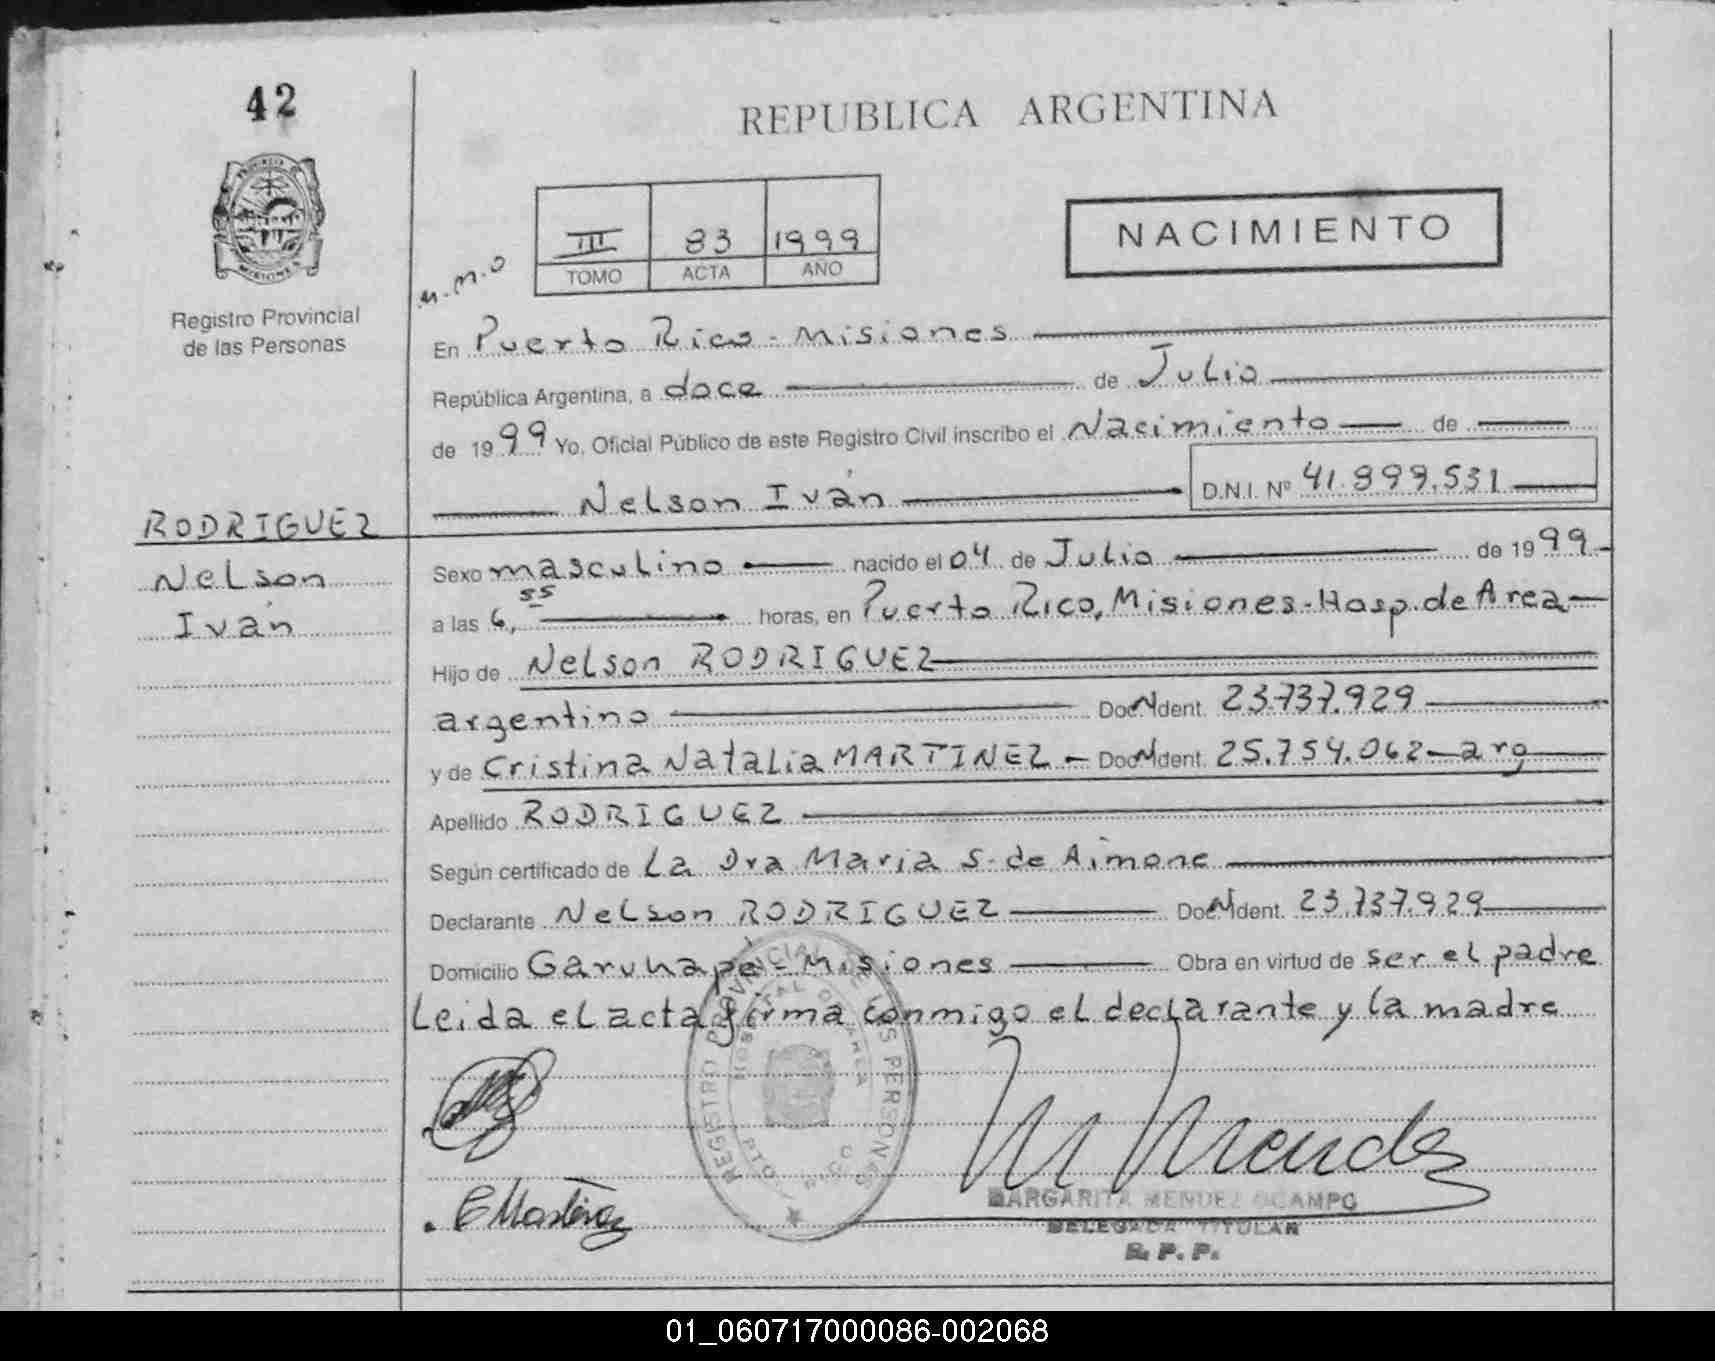 42
REPUBLICA ARGENTINA
PROVINCIA DE
MISIONES
Registro Provincial
de las Personas
III 83 1999
TOMO ACTA AÑO
NACIMIENTO
M.M.O
En Puerto Rico - Misiones
República Argentina, a doce de Julio
de 1999 Yo, Oficial Público de este Registro Civil inscribo el Nacimiento de
Nelson Iván D.N.I. Nº 41.999.531
RODRIGUEZ
Nelson
Iván
Sexo masculino nacido el 04 de Julio de 1999
a las 6,55 horas, en Puerto Rico, Misiones - Hosp. de Area
Hijo de Nelson RODRIGUEZ
argentino Doc. Ident. 23.737.929
y de Cristina Natalia MARTINEZ - Doc. Ident. 25.754.062 - arg
Apellido RODRIGUEZ
Según certificado de La Dra Maria S. de Aimone
Declarante Nelson RODRIGUEZ Doc. Ident. 23.737.929
Domicilio Garuhapé - Misiones Obra en virtud de ser el padre
Leida el acta firma conmigo el declarante y la madre
REGISTRO PROVINCIAL DE LAS PERSONAS
HOSPITAL DE AREA
PTO. RICO
M Mendez
C Martinez
MARGARITA MENDEZ OCAMPO
DELEGADA TITULAR
R. P. P.
01_060717000086-002068